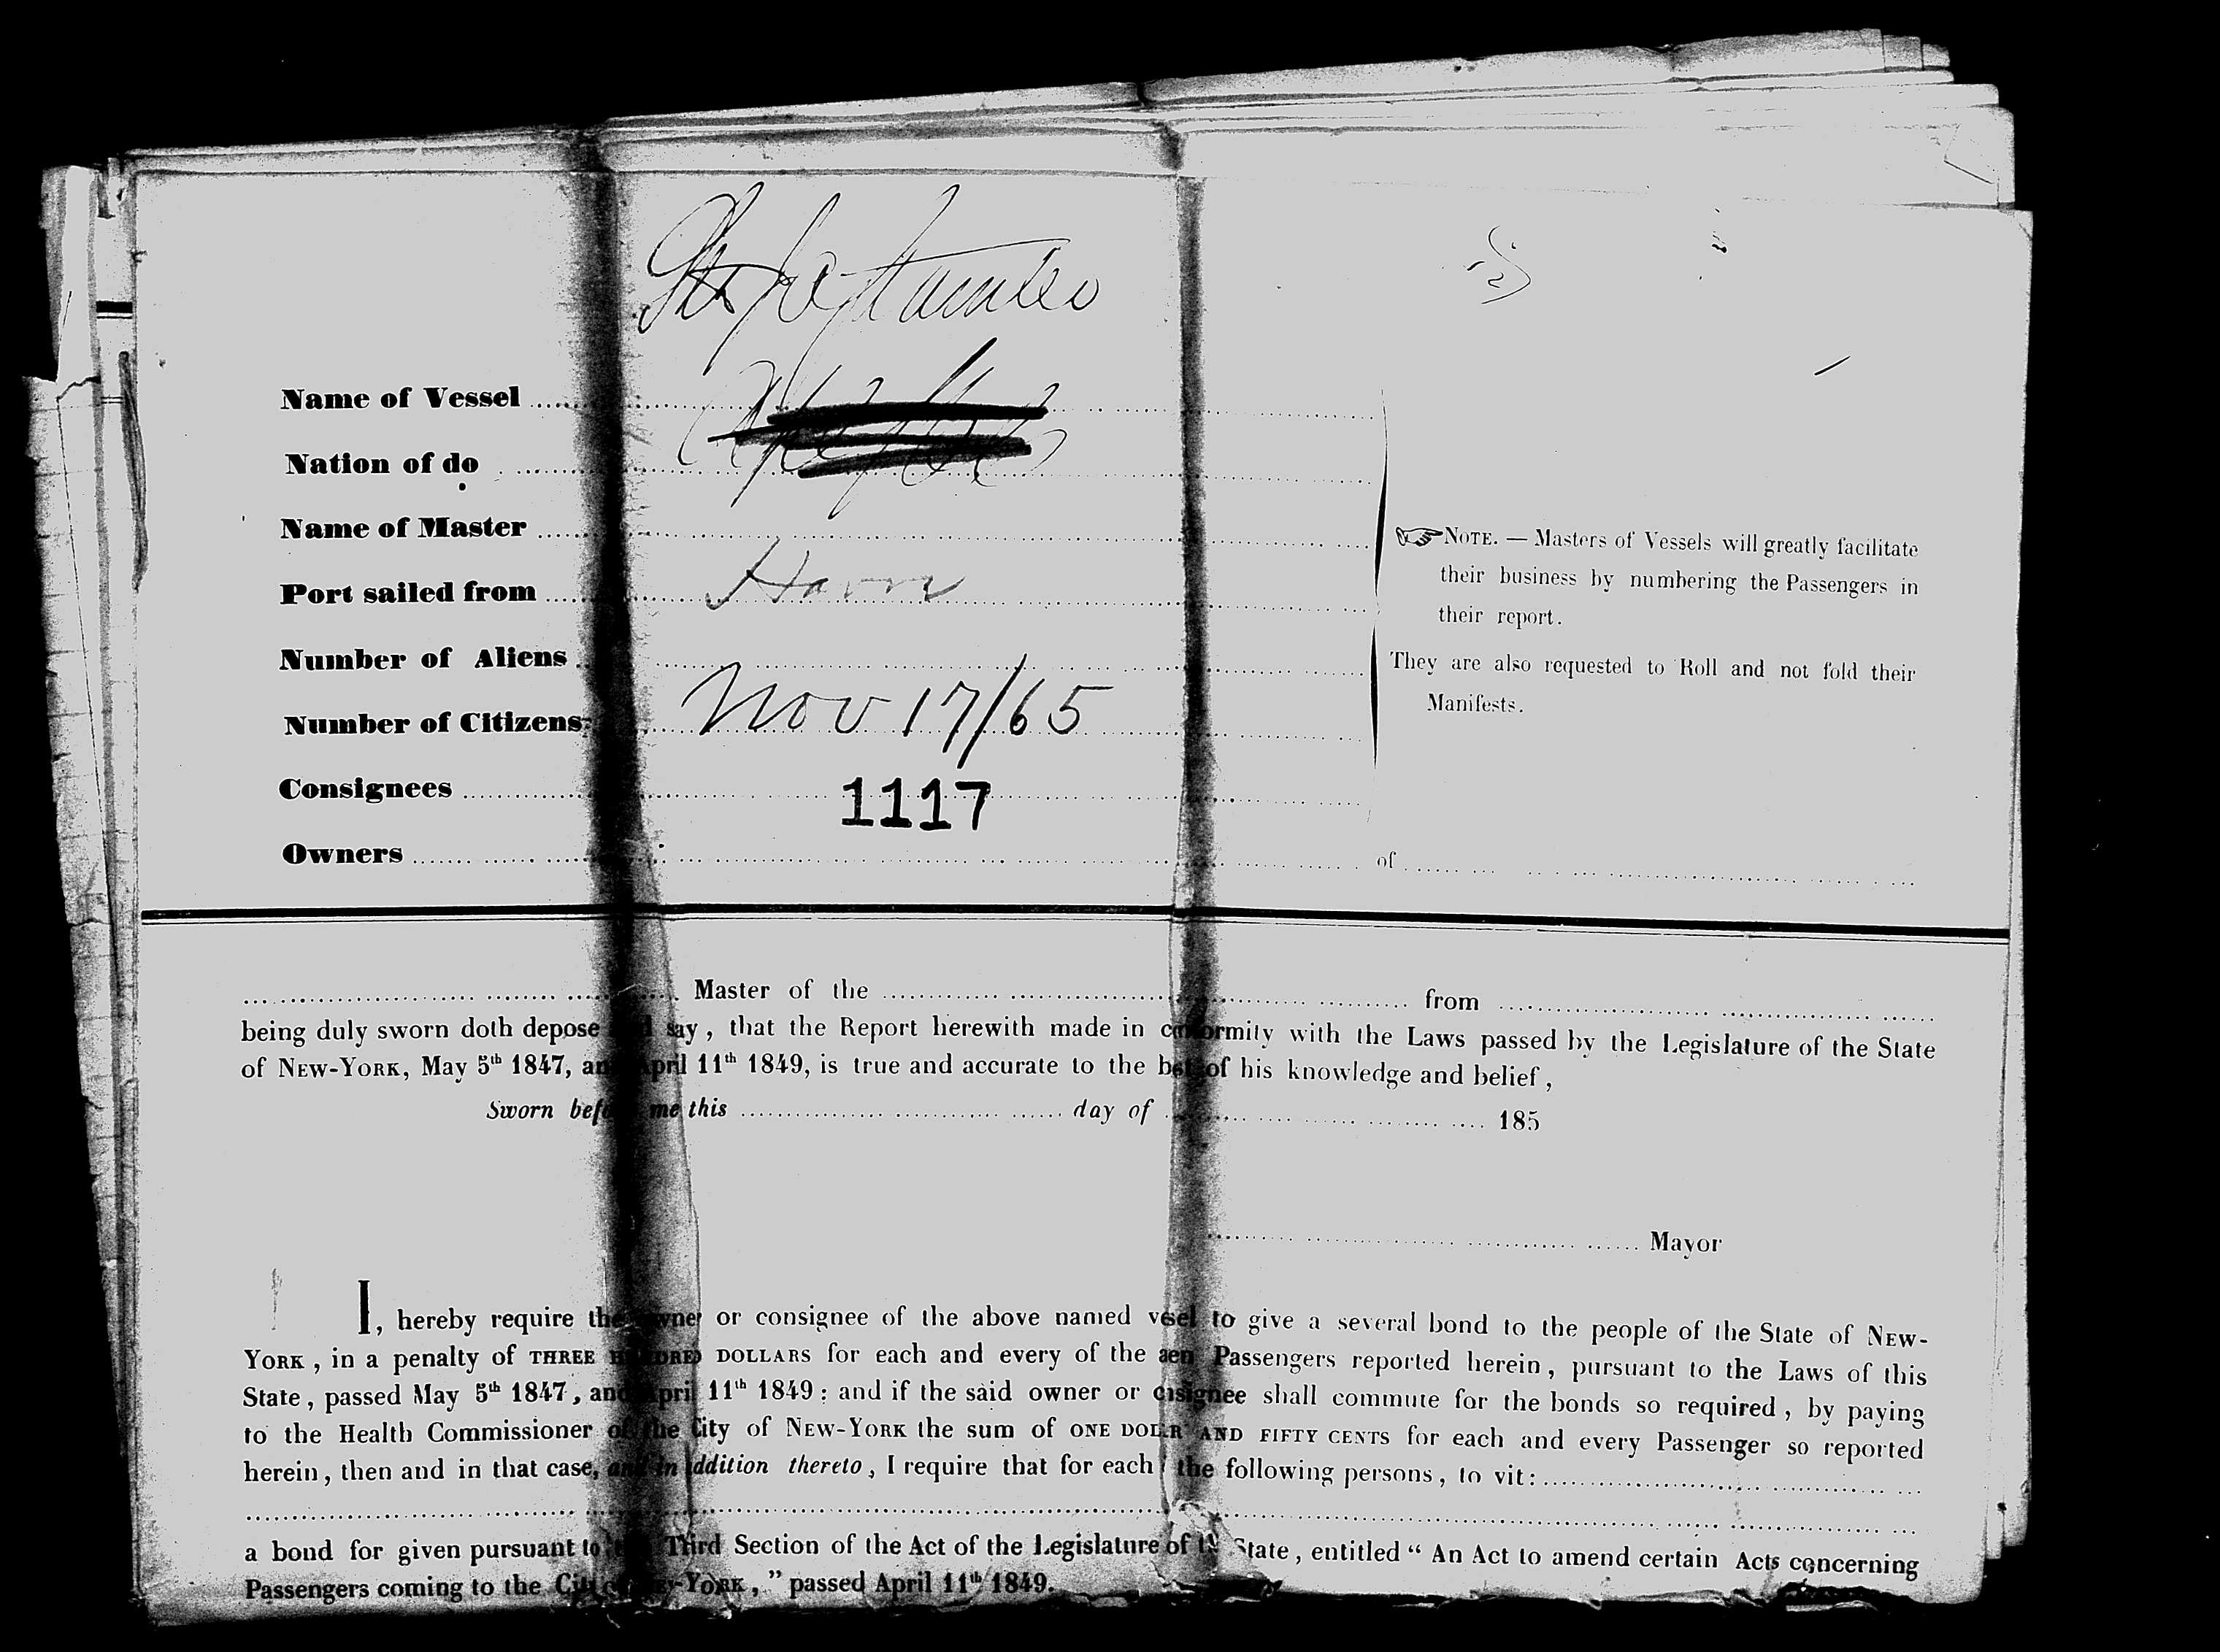 Name of Vessel
Nation of do
Name of Master
Port sailed from Havre
Number of Aliens
Number of Citizens Nov 17/65
Consignees 1117
Owners of
NOTE. — Masters of Vessels will greatly facilitate
their business by numbering the Passengers in
their report.
They are also requested to Roll and not fold their
Manifests.
Master of the from
being duly sworn doth depose say, that the Report herewith made in conformity with the Laws passed by the Legislature of the State
of NEW-YORK, May 5th 1847, and April 11th 1849, is true and accurate to the best of his knowledge and belief,
Sworn before me this day of 185
Mayor
I, hereby require the owner or consignee of the above named vessel to give a several bond to the people of the State of NEW-
YORK, in a penalty of THREE HUNDRED DOLLARS for each and every of the Passengers reported herein, pursuant to the Laws of this
State, passed May 5th 1847, and April 11th 1849: and if the said owner or consignee shall commute for the bonds so required, by paying
to the Health Commissioner of the City of NEW-YORK the sum of ONE DOLLAR AND FIFTY CENTS for each and every Passenger so reported
herein, then and in that case, and in addition thereto, I require that for each the following persons, to vit:
a bond for given pursuant to Third Section of the Act of the Legislature of State, entitled “An Act to amend certain Acts concerning
Passengers coming to the City of New-YORK,” passed April 11th 1849.